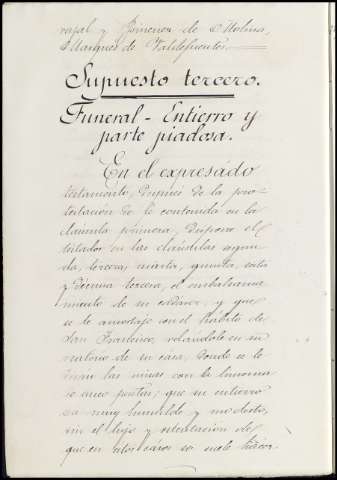 vajal y Jimenez de Molina,
Marqués de Valdefuentes.
Supuesto tercero.
Funeral - Entierro y
parte piadosa.
En el expresado
testamento, después de la pro-
testación de fe contenida en la
cláusula primera, dispone el
testador en las cláusulas segun-
da, tercera, cuarta, quinta, sexta
y décima tercera, el embalsama-
miento de su cadáver, y que
se le amortaje con el hábito de
San Francisco, velándole en su
oratorio de su casa, donde se le
dirán las misas con la limosna
de cinco pesetas; que su entierro
sea muy humilde y modesto,
sin el lujo y ostentación de
que en tales casos se suele hacer